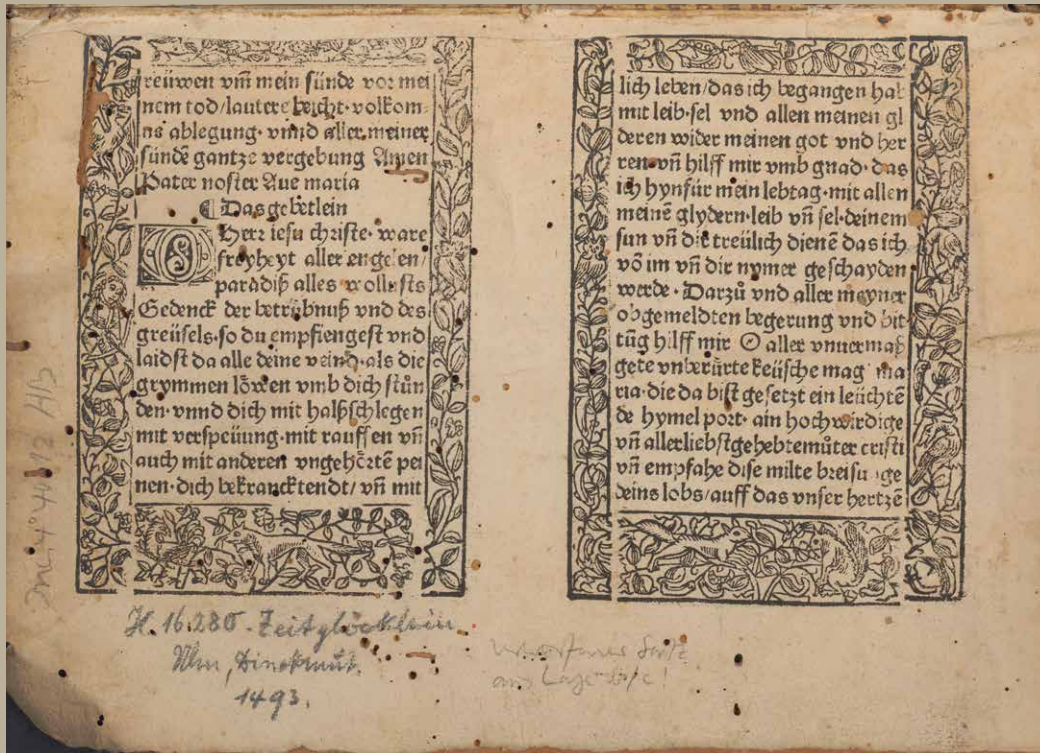 reüwen vm̄ mein sünde vor mei
nem tod/lautere beicht· volkom⸗
ns ablegung· vnnd aller meiner
sündē gantze vergebung Amen
Pater noster Aue maria
¶ Das gebetlein
O Herr iesu christe· ware
freyheyt aller engelen/
paradiß alles wollusts
Gedenck der betrübnuß vnd des
greüsels·so du empfiengest vnd
laidst da alle deine veind·als die
grymmen lōwen vmb dich stůn
den·vnnd dich mit halßschlegen
mit verspeüung·mit rauffen vn̄
auch mit anderen vngehörtē pei
nen·dich bekrancktendt/vn̄ mit
lich leben/das ich begangen hab
mit leib·sel vnd allen meinen gl
deren wider meinen got vnd her
ren·vn̄ hilff mir vmb gnad·das
ich hynfür mein lebtag·mit allen
meinē glydern·leib vn̄ sel·deinem
sun vn̄ dir treülich dienē das ich
vō im vn̄ dir nymer geschayden
werde· Darzů vnd aller meyner
obgemeldten begerung vnd bit
tūg hilff mir O aller vnuermaß
gete vnberürte keüsche mag ma
ria·die da bist gesetzt ein leüchtē
de hymel port· ain hochwirdige
vn̄ allerliebstgehebtemůter cristi
vn̄ empfahe dise milte breisu ge
deins lobs/auff das vnser hertzē
H. 16280. Zeitglöcklein
Ulm, Dinckmut.
1493.